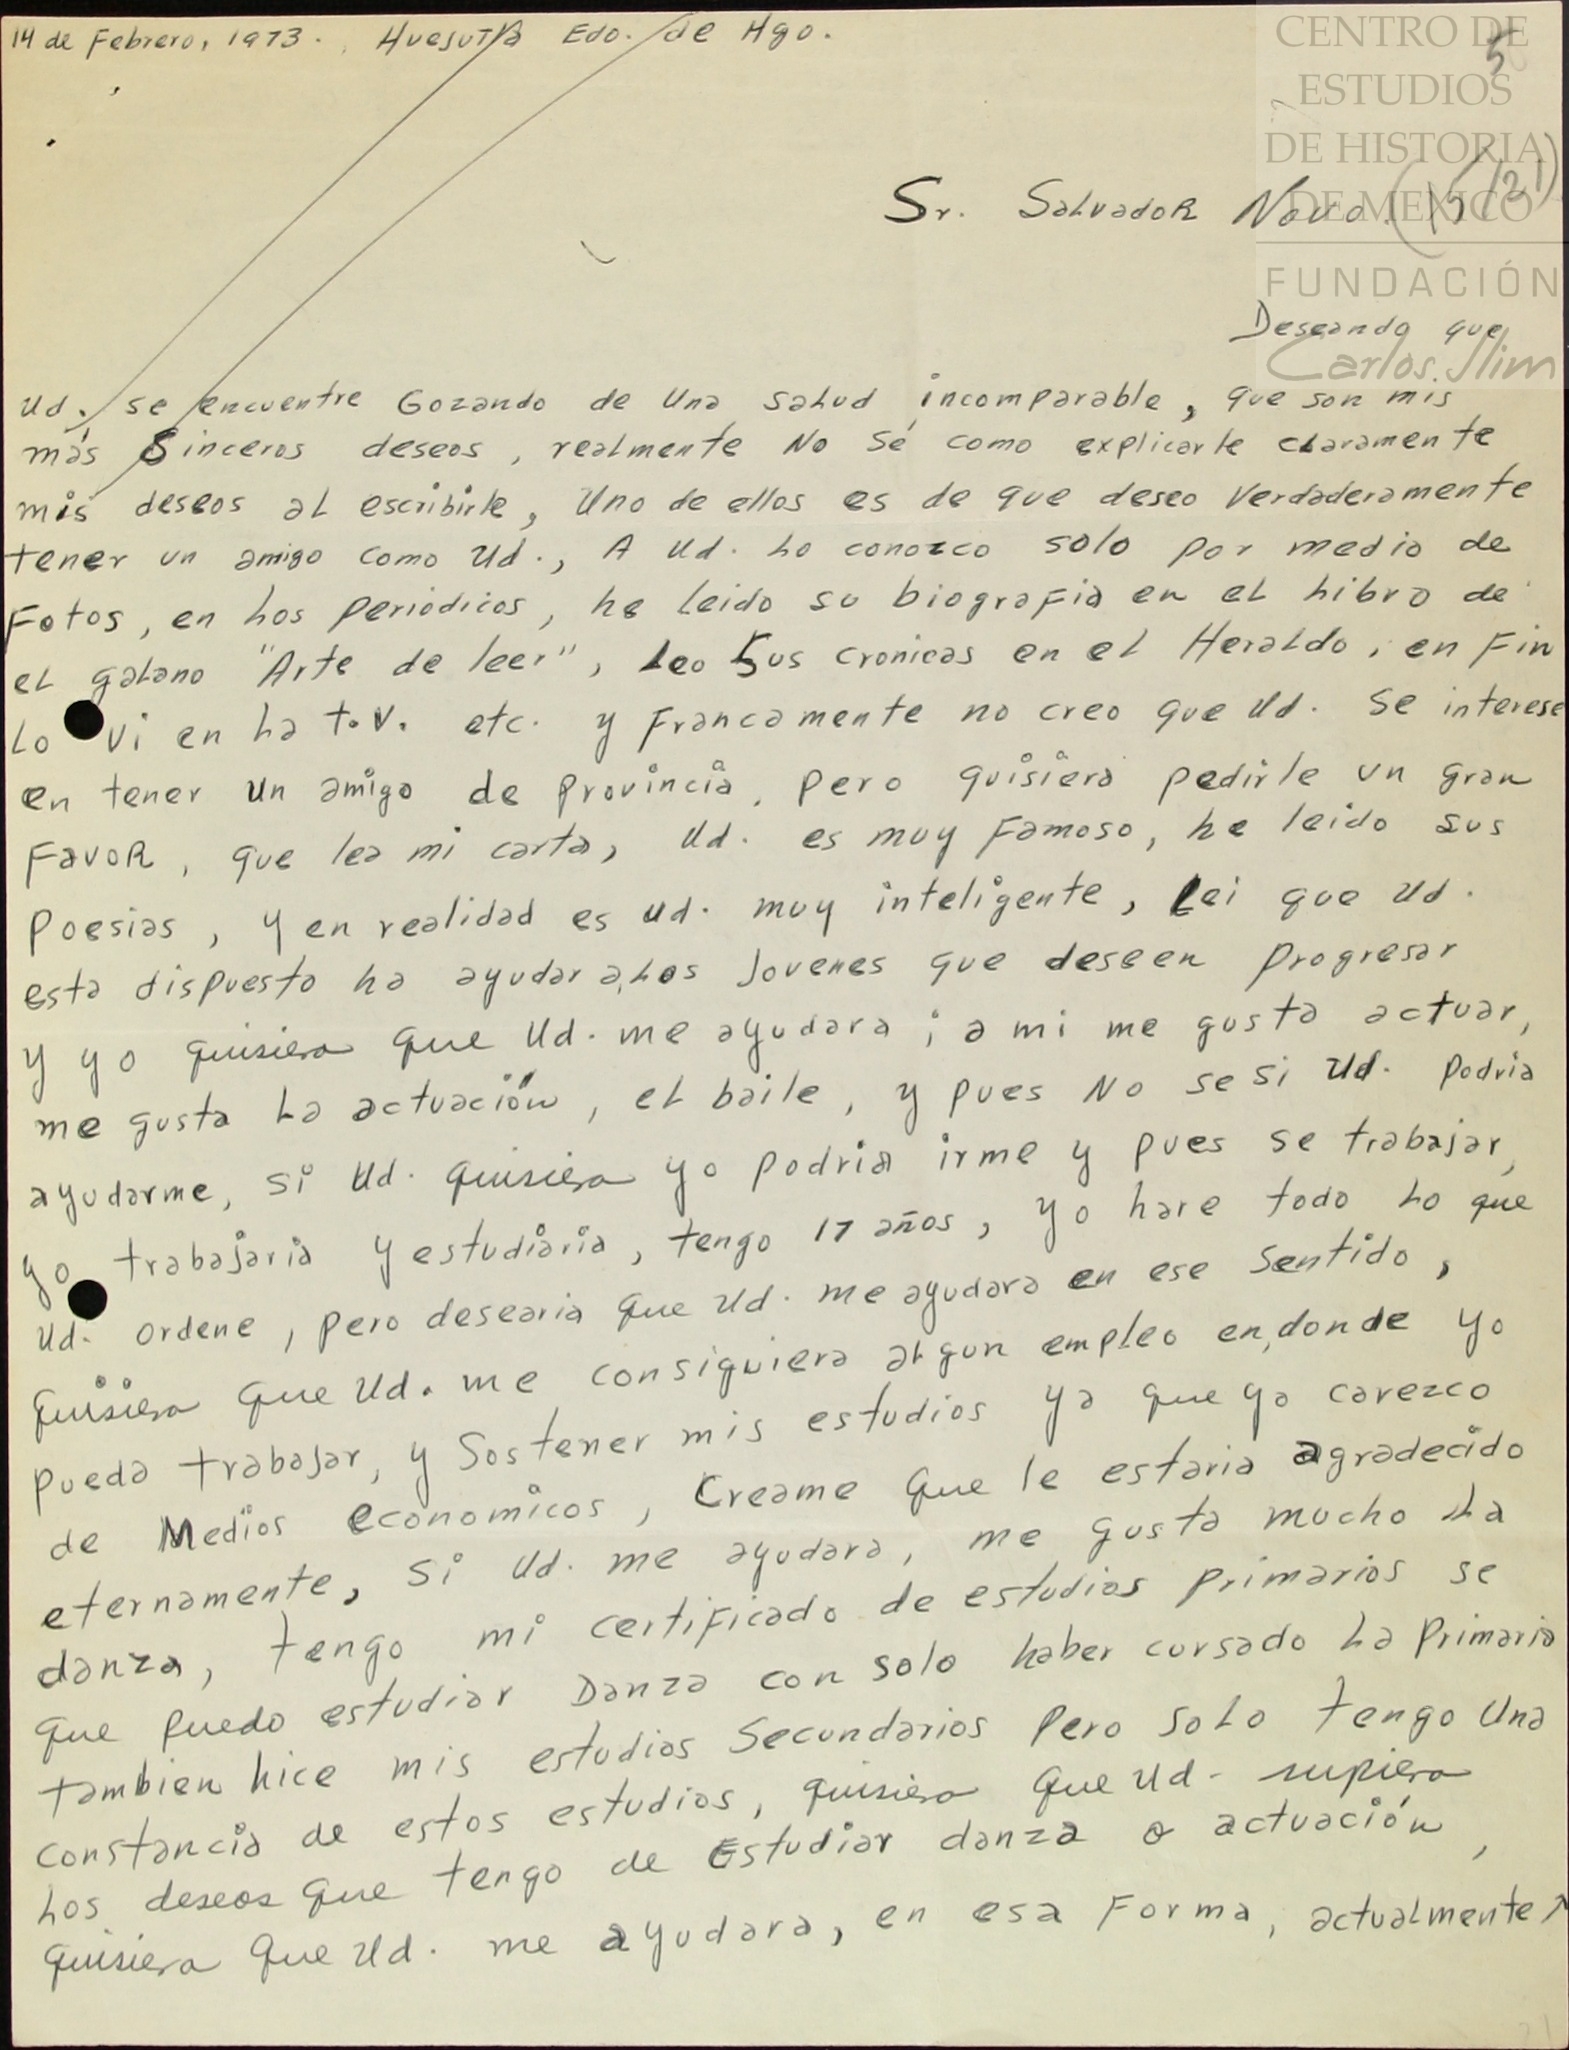 14 de Febrero, 1973. Huejutla Edo. de Hgo.
CENTRO DE
ESTUDIOS
DE HISTORIA
DE MEXICO
5
(15/21)
Sr. Salvador Novo.
FUNDACIÓN
Carlos Slim
Deseando que
Ud. se encuentre Gozando de una salud incomparable, que son mis
más sinceros deseos, realmente No sé como explicarle claramente
mis deseos al escribirle, Uno de ellos es de que deseo verdaderamente
tener un amigo como Ud., A Ud. Lo conozco solo por medio de
Fotos, en Los periódicos, he leido su biografia en el Libro de
el galano "Arte de leer", Leo Sus cronicas en el Heraldo, en Fin
Lo vi en La t.v. etc. y Francamente no creo que Ud. se interese
en tener un amigo de provincia, pero quisiera pedirle un gran
Favor, que lea mi carta, Ud. es muy Famoso, he leido sus
poesias, y en realidad es Ud. muy inteligente, Lei que Ud.
esta dispuesto ha ayudar a Los Jovenes que deseen progresar
y yo quisiera que Ud. me ayudara; a mi me gusta actuar,
me gusta La actuación, el baile, y pues No se si Ud. podria
ayudarme, si Ud. quisiera yo podria irme y pues se trabajar,
yo trabajaria y estudiaria, tengo 17 años, yo hare todo Lo que
Ud. ordene, pero desearia que Ud. me ayudara en ese sentido,
quisiera que Ud. me consiguiera algun empleo en donde yo
pueda trabajar, y Sostener mis estudios ya que yo carezco
de Medios economicos, Creame que le estaria agradecido
eternamente, si Ud. me ayudara, me gusta mucho La
danza, tengo mi certificado de estudios primarios se
que puedo estudiar Danza con solo haber cursado La Primaria
tambien hice mis estudios Secundarios pero solo tengo Una
constancia de estos estudios, quisiera que Ud. supiera
Los deseos que tengo de Estudiar danza o actuación,
quisiera que Ud. me ayudara, en esa Forma, actualmente
21